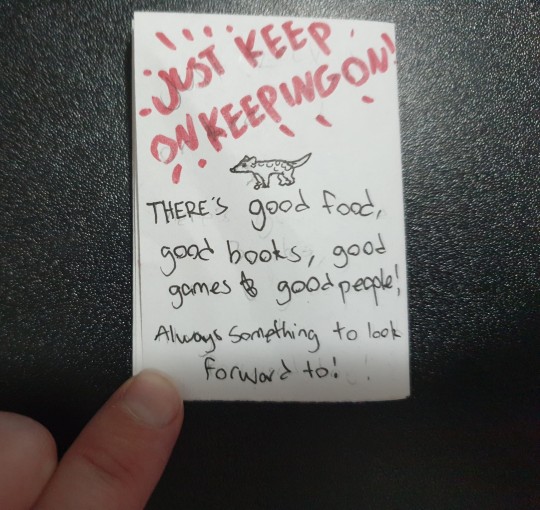 JUST KEEP
ON KEEPING ON!
THERE'S good food,
good books, good
games & good people!
Always something to look
forward to!